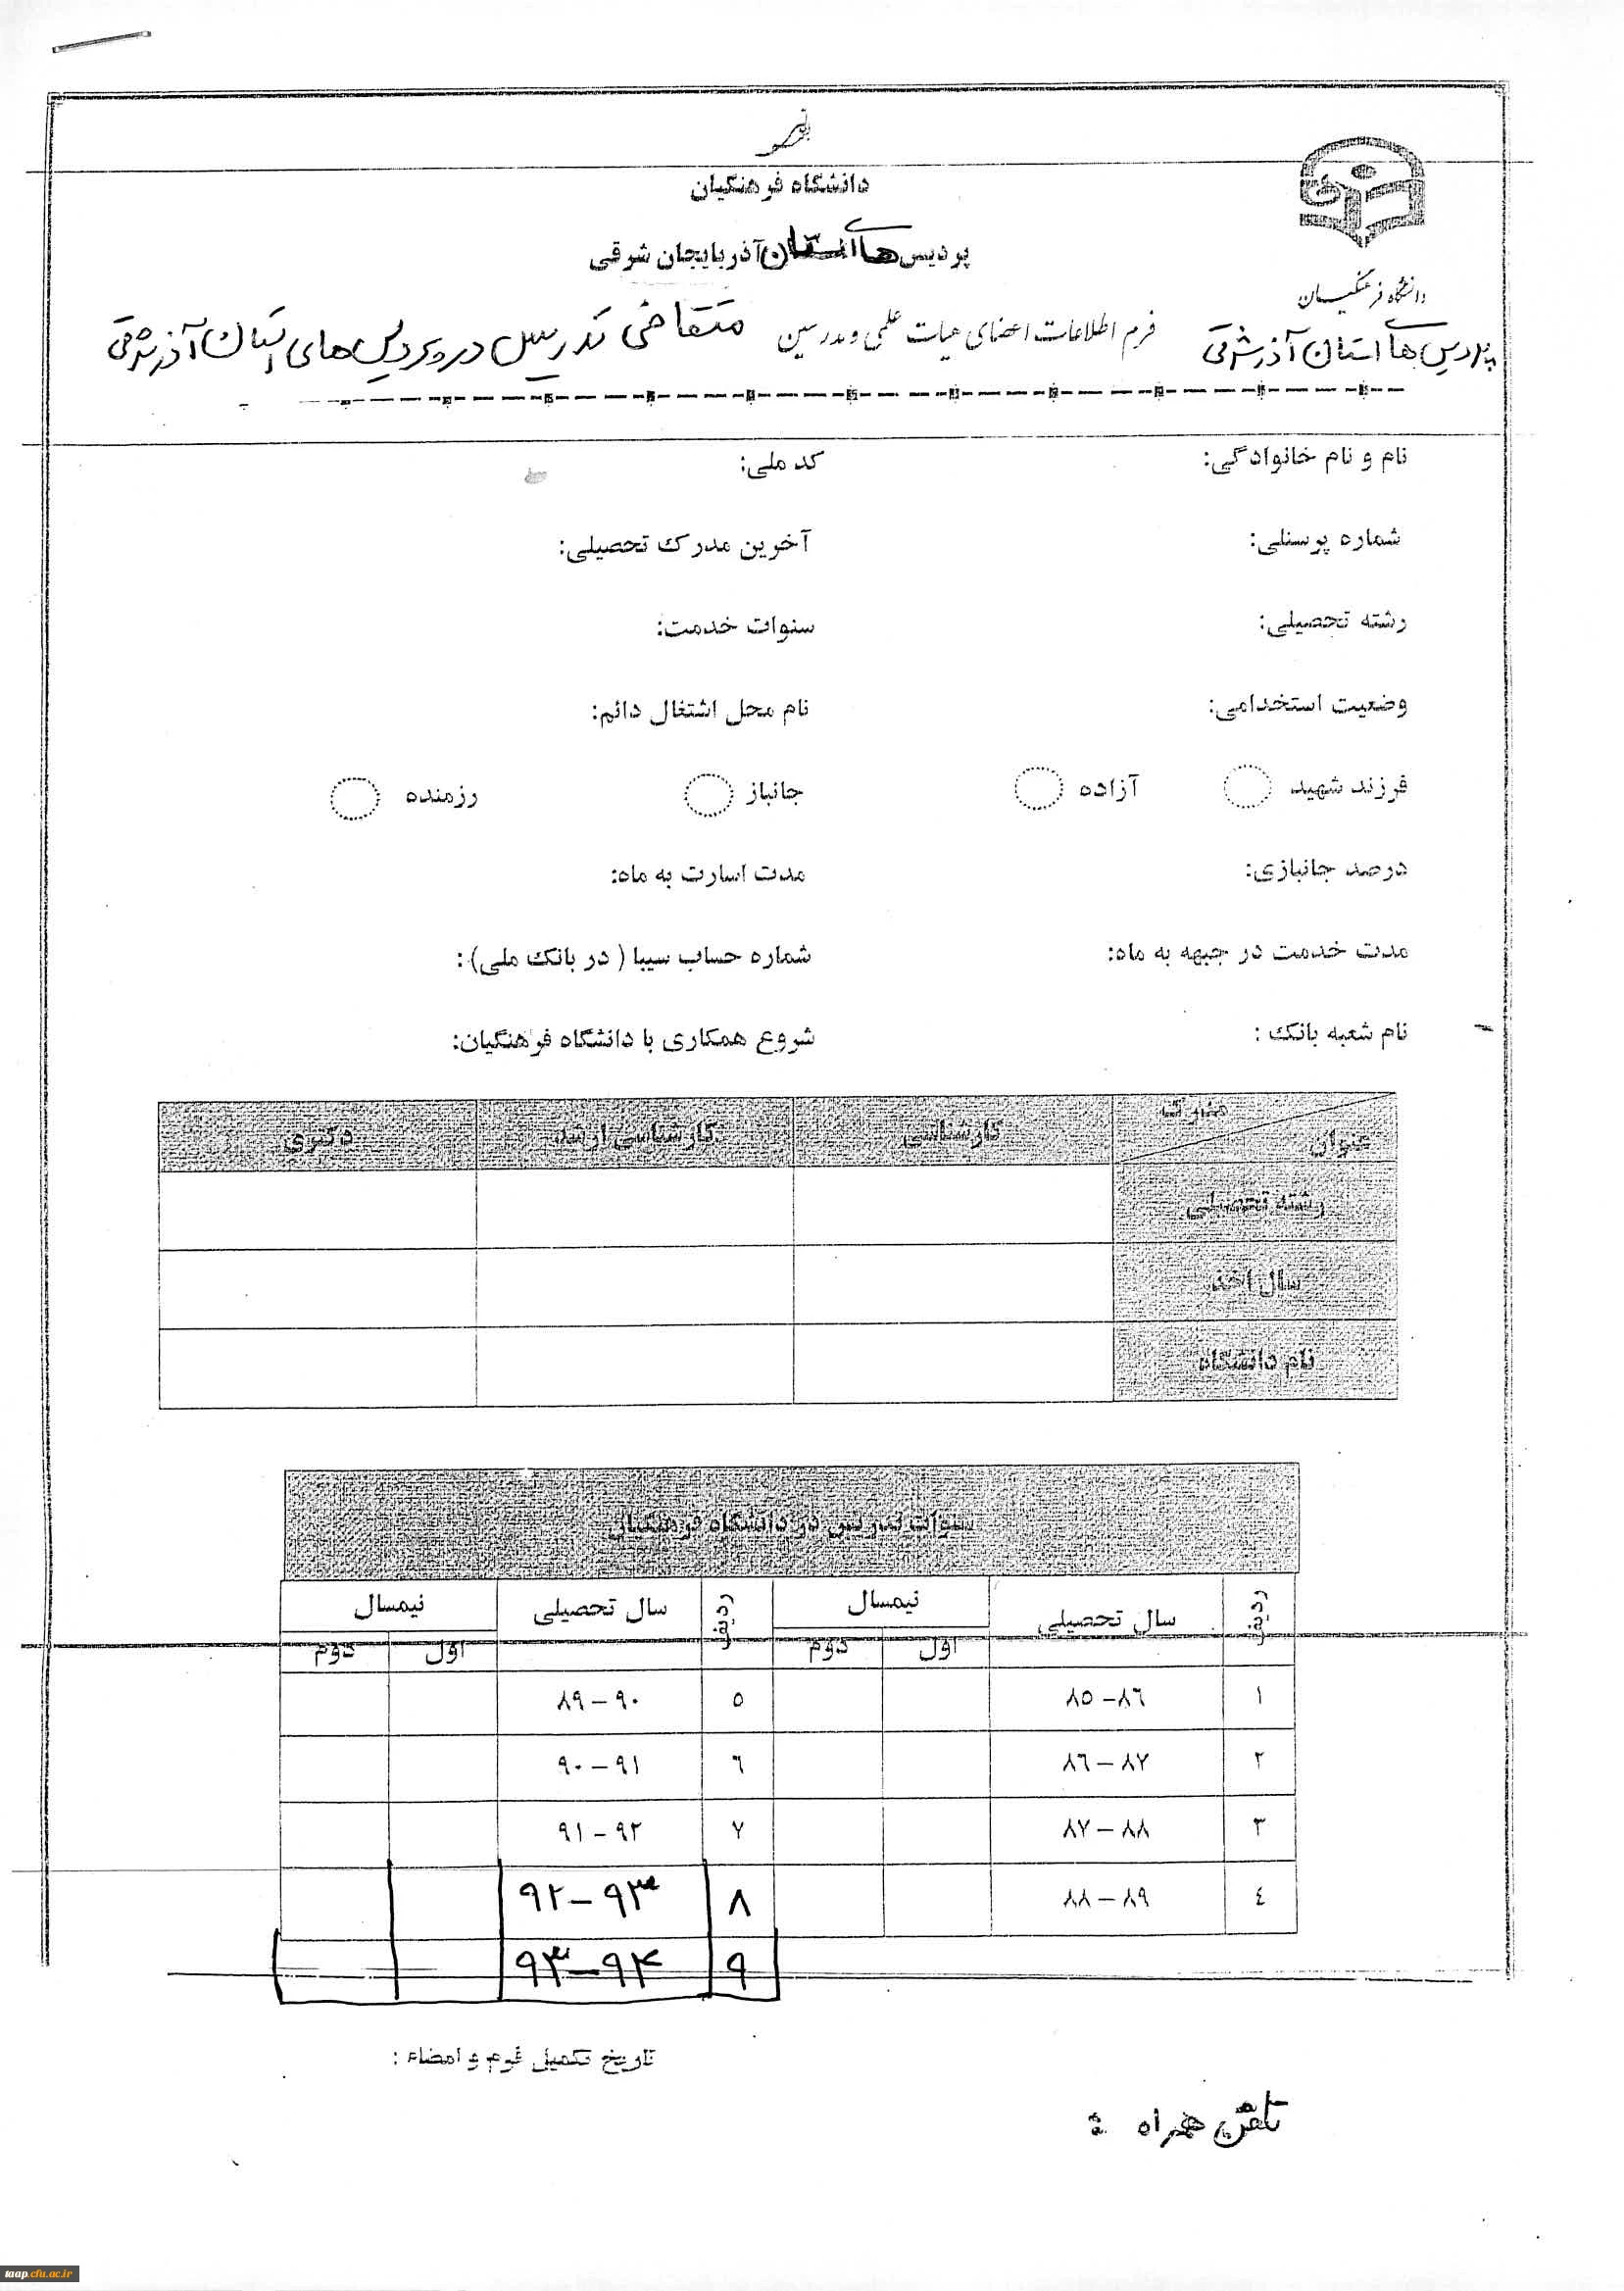 دانشگاه فرهنگیان
پردیس های استان آذربایجان شرقی
دانشگاه فرهنگیان
پردیس های استان آذرشرقی
فرم اطلاعات اعضای هیات علمی و مدرسین متقاضی تدریس در پردیس های استان آذرشرقی
نام و نام خانوادگی: کد ملی:
شماره پرسنلی: آخرین مدرک تحصیلی:
رشته تحصیلی: سنوات خدمت:
وضعیت استخدامی: نام محل اشتغال دائم:
فرزند شهید آزاده جانباز رزمنده
درصد جانبازی: مدت اسارت به ماه:
مدت خدمت در جبهه به ماه: شماره حساب سیبا ( در بانک ملی) :
نام شعبه بانک : شروع همکاری با دانشگاه فرهنگیان:
مدرک
عنوان کارشناسی کارشناسی ارشد دکتری
رشته تحصیلی
سال اخذ
نام دانشگاه
سنوات تدریس در دانشگاه فرهنگیان
ردیف سال تحصیلی نیمسال ردیف سال تحصیلی نیمسال
اول دوم اول دوم
۱ ۸۵-۸٦ ۵ ۸۹-۹۰
۲ ۸٦-۸۷ ٦ ۹۰-۹۱
۳ ۸۷-۸۸ ۷ ۹۱-۹۲
٤ ۸۸-۸۹ ۸ ۹۲-۹۳
۹ ۹۳-۹۴
تاریخ تکمیل فرم و امضاء :
تلفن همراه :
taap.cfu.ac.ir